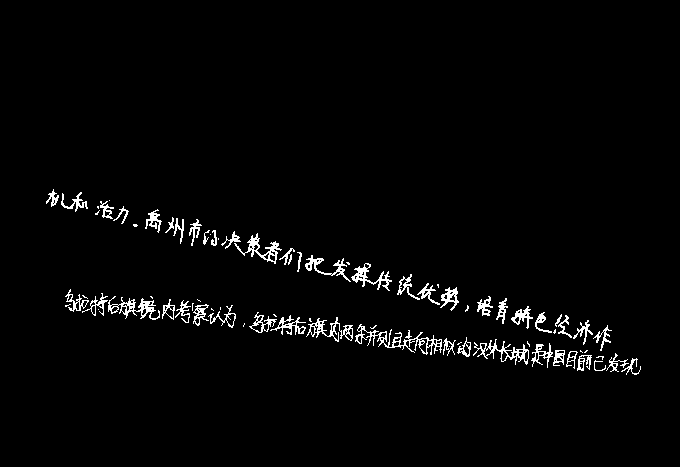 机和活力.禹州市的决策者们把发挥传统优势,培育特色经济作
乌拉特后旗镜内考察认为,乌拉特后旗的两条并列且走向相似的汉外长城是中国目前已发现